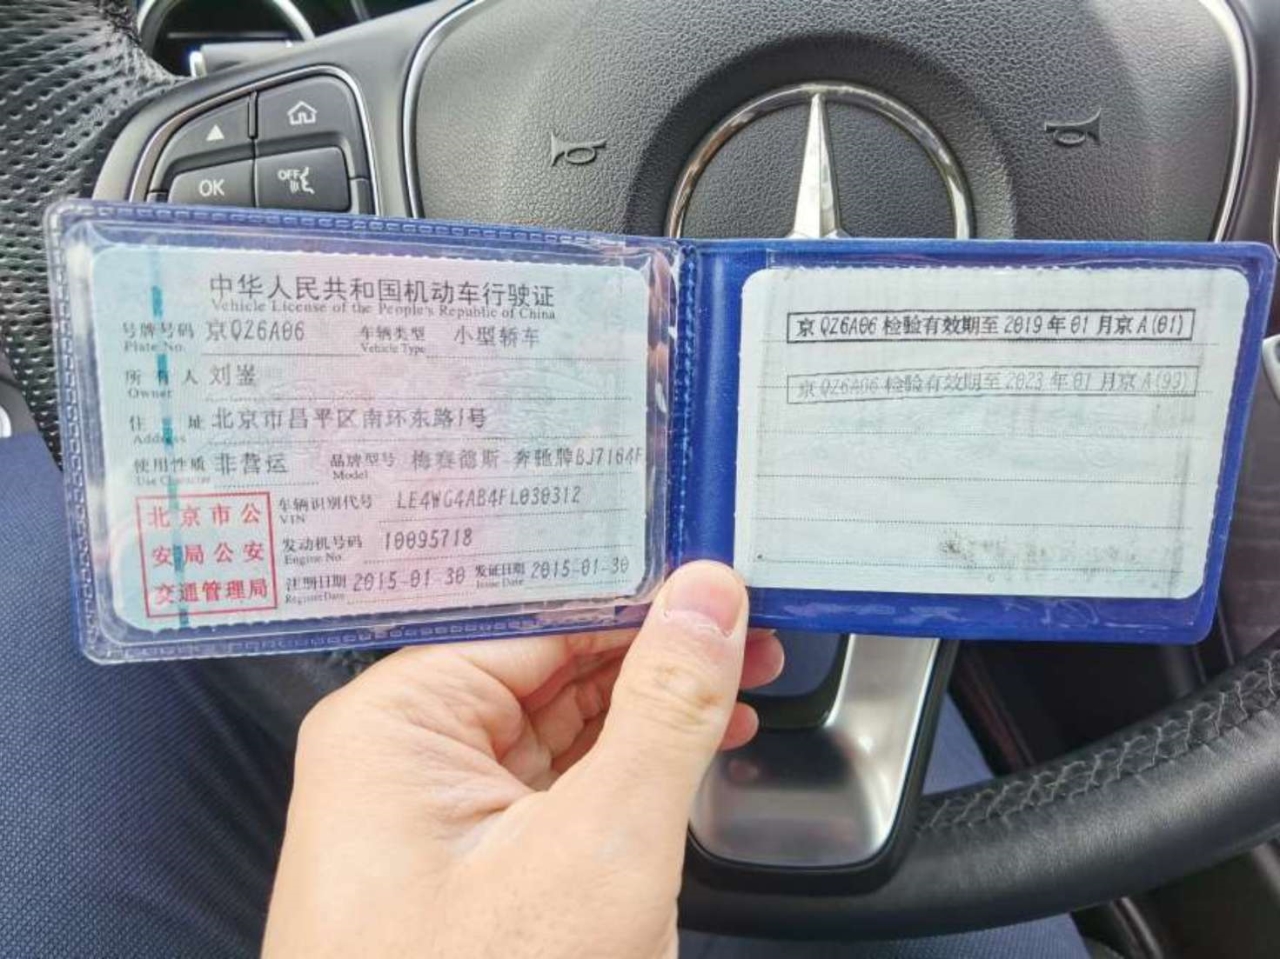 OK
OFF
中华人民共和国机动车行驶证
Vehicle License of the People's Republic of China
号牌号码 京QZ6A06 车辆类型 小型轿车
Plate No. Vehicle Type
所有人 刘崟
Owner
住址 北京市昌平区南环东路1号
Address
使用性质 非营运 品牌型号 梅赛德斯-奔驰牌BJ7164F
Use Character Model
北京市公
安局公安
交通管理局
车辆识别代号 LE4WG4AB4FL030312
VIN
发动机号码 10095718
Engine No.
注册日期 2015-01-30 发证日期 2015-01-30
Register Date Issue Date
京QZ6A06检验有效期至2019年01月京A(01)
京QZ6A06检验有效期至2023年01月京A(93)